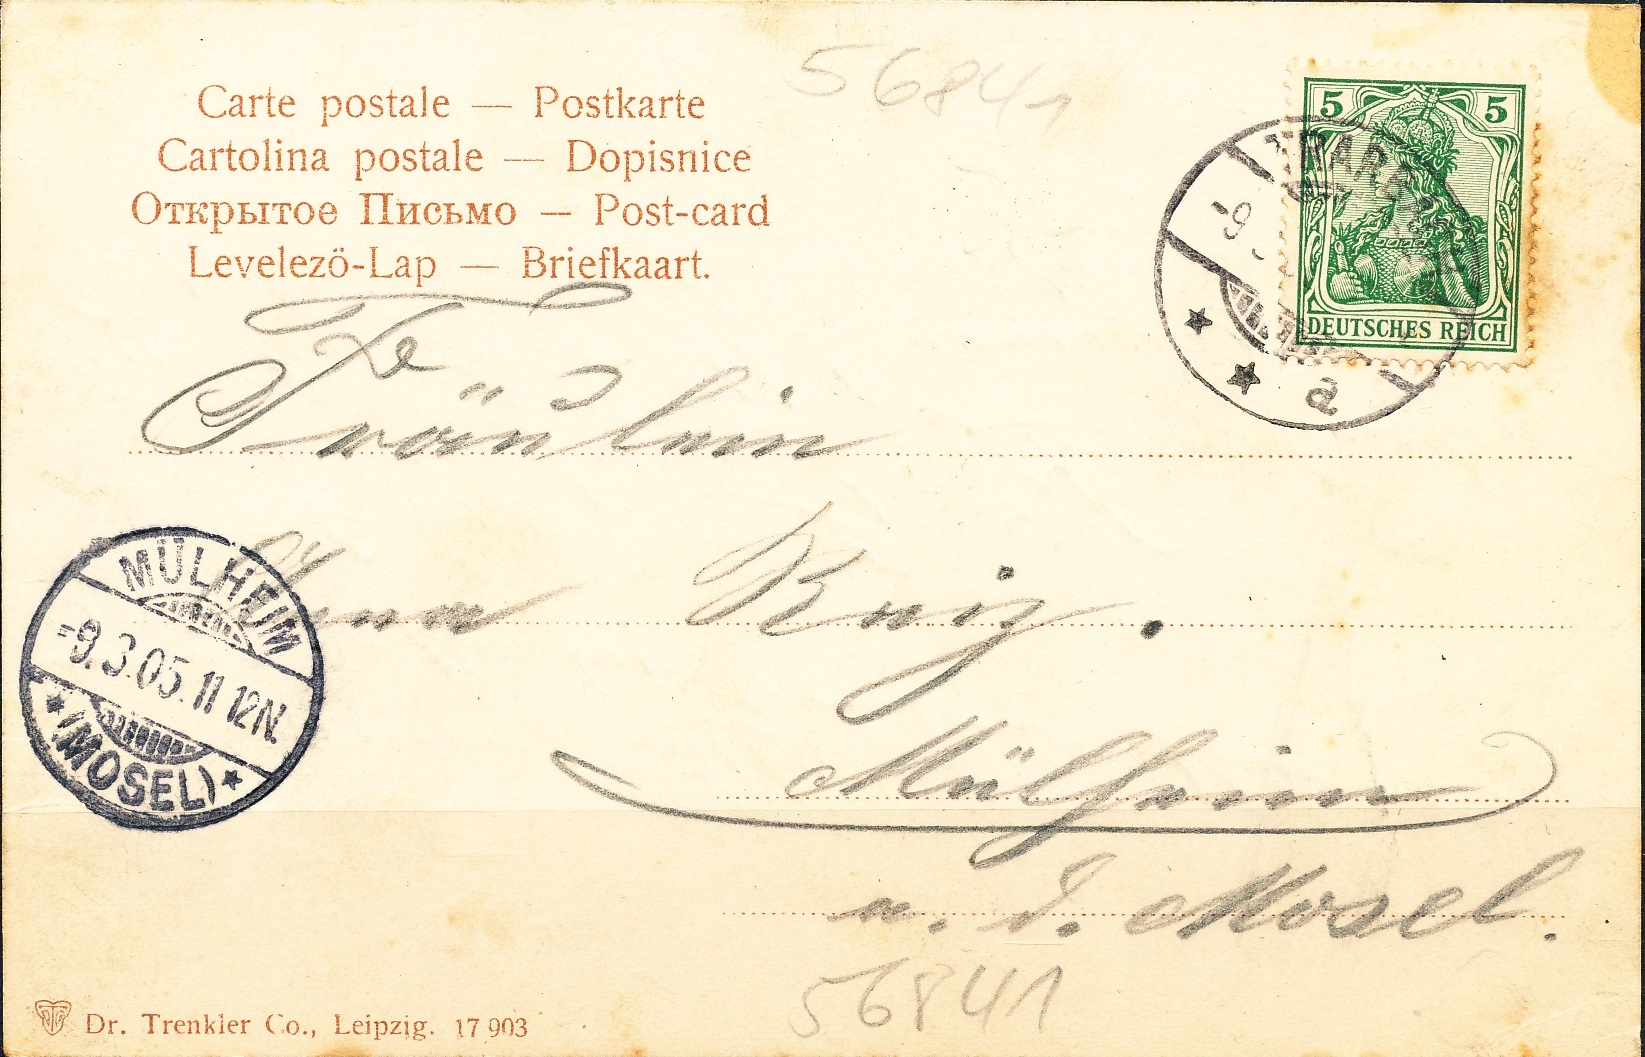 56841
Carte postale — Postkarte
Cartolina postale — Dopisnice
Открытое Письмо — Post-card
Levelezö-Lap — Briefkaart.
5 5
DEUTSCHES REICH
TRARB
9
a
Fräulein
Anna
MÜLHEIM
-9.3.05.11 12N.
(MOSEL)
Mülheim
a. d. Mosel.
56841
Dr. Trenkler Co., Leipzig. 17 903